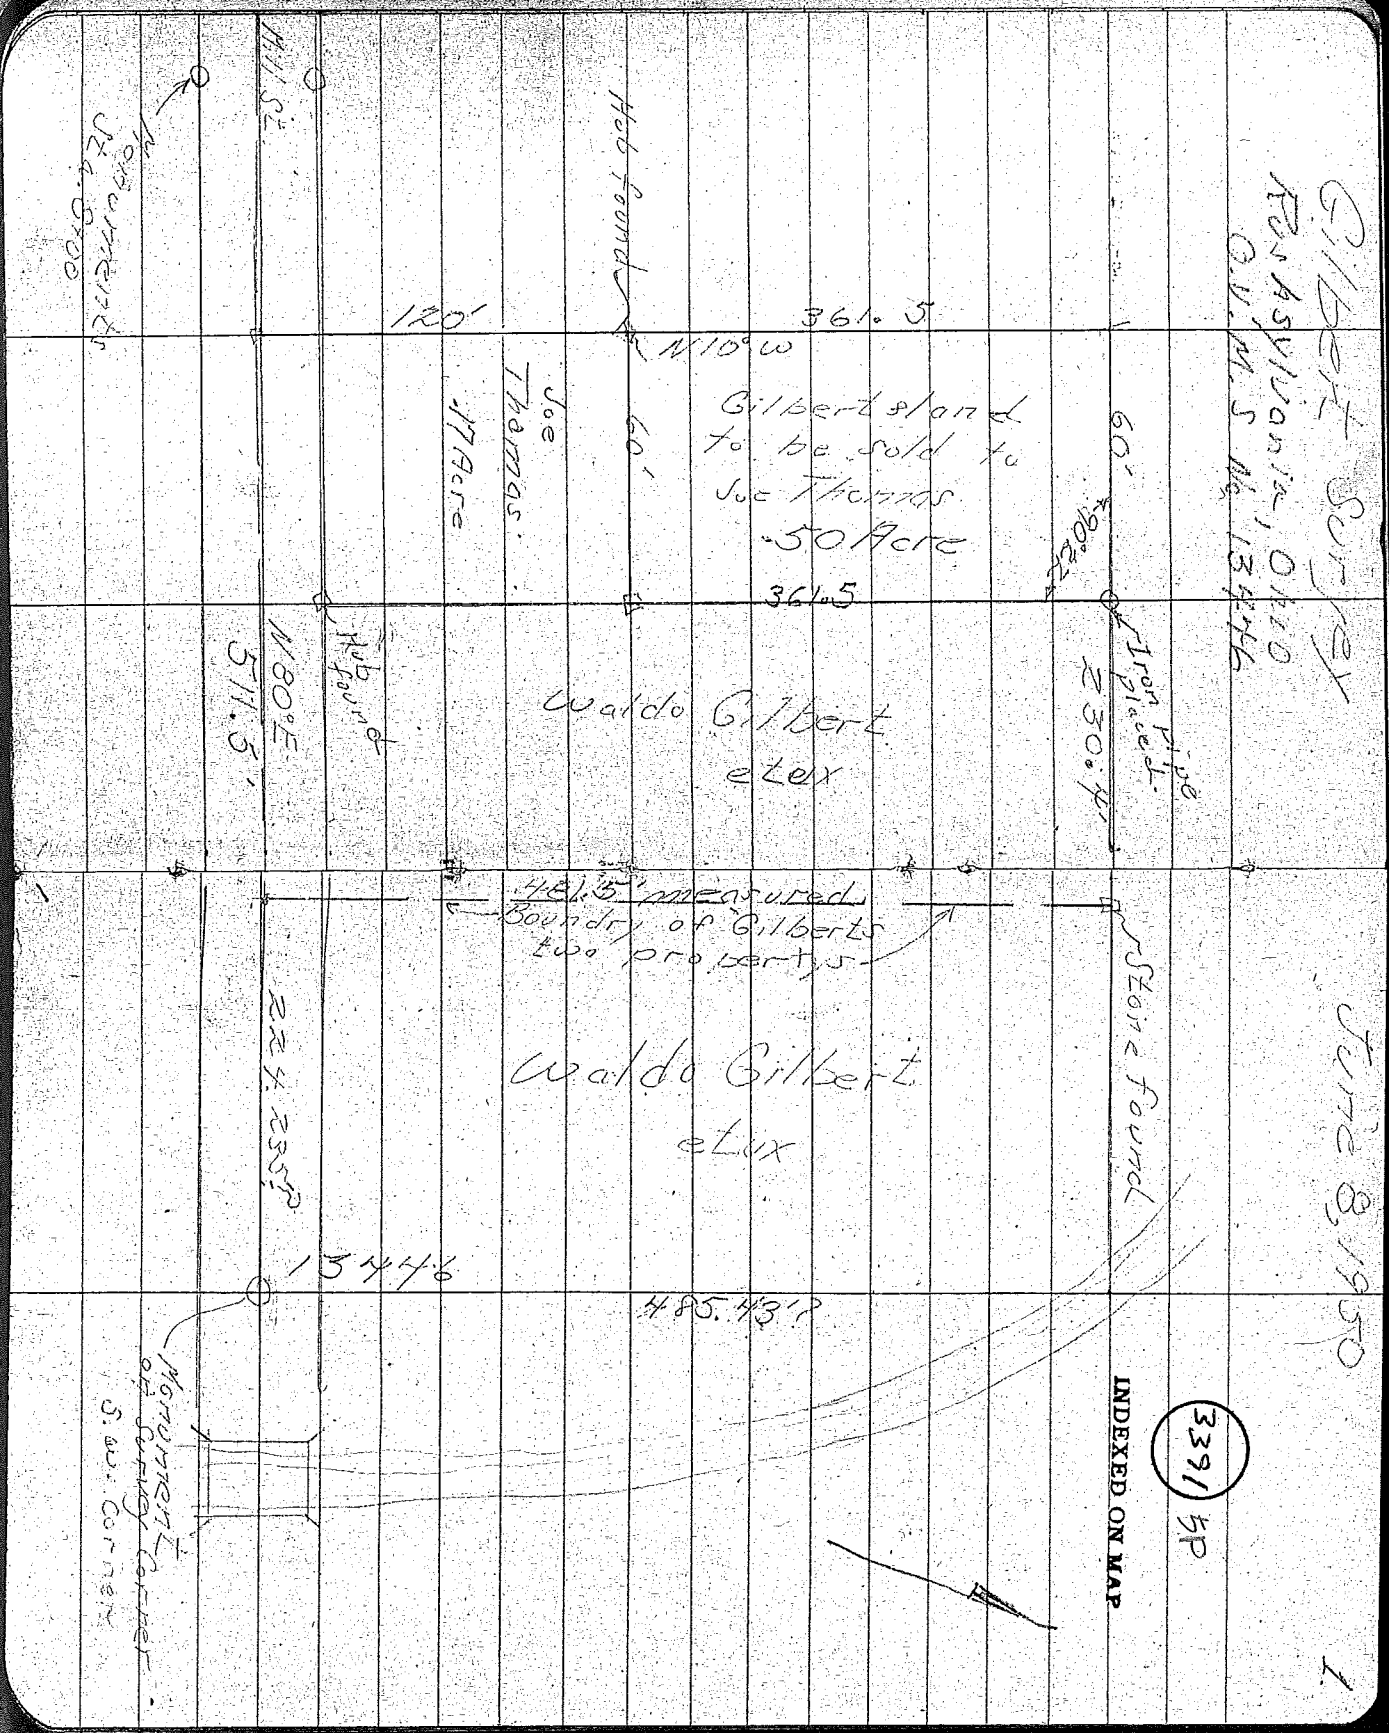 Gilbert Survey
June 8, 1950
1.
Ohio
O.V.M.S No 13446
3391 5P
INDEXED ON MAP
Mill St.
Monuments
Sta. 0+00
Hub found
120'
361.5
N10°W
Joe
Thomas
.17 Acre
60'
Gilberts land
to be sold to
Joe Thomas
.50 Acre
60'
361.5
Iron pipe
placed
230.4'
Hub
found
N80°E
511.5'
Waldo Gilbert
etux
481.5' measured
Boundry of Gilberts
two propertys
Stone found
Waldo Gilbert
etux
13446
485.43'?
Monument
on Survey Corner
S.W. Corner